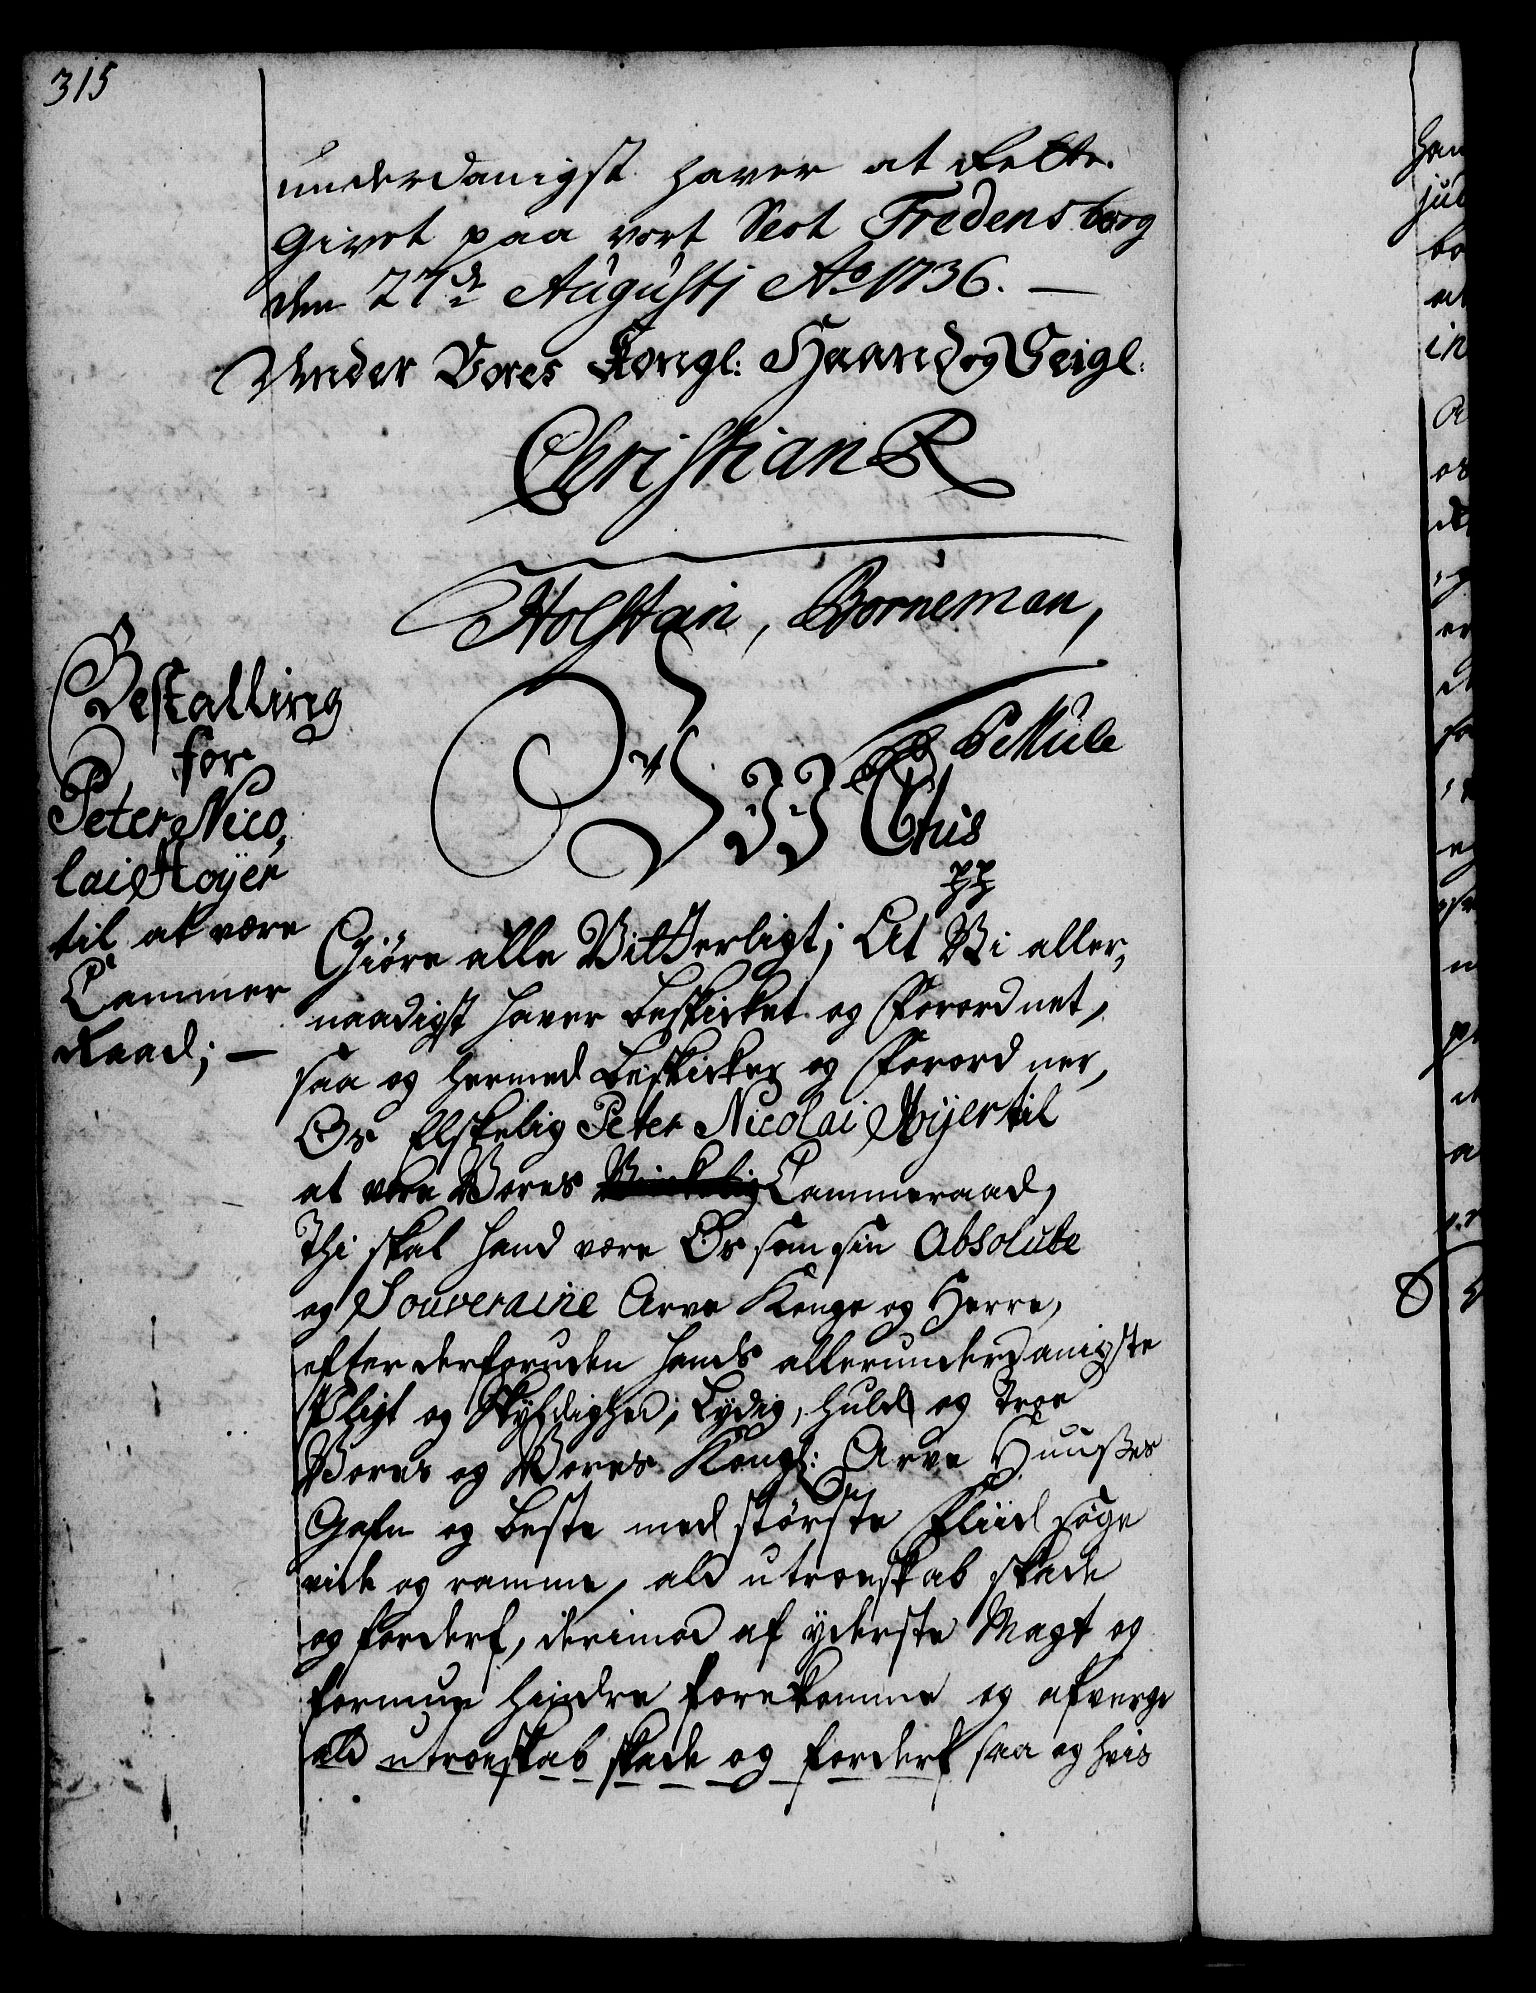 315
underdanigst haver at Rette.
Givet paa vort Slot Fredensborg
den 27de Augustj Ao 1736. —
Under Vores Kongl: Haand og Seigl:
Christian R
Holstain, Borneman,
P Mule
Bestalling
for
Peter Nico,
lai Høyer
til at være
Cammer
Raad; —
Wii Chr: 6tus
pp
Giøre alle Vitterligt; At Vi aller,
naadigst haver beskicket og Forordnet,
saa og hermed Beskicker og Forordner,
Os Elskelig Peter Nicolai Høijer til
at være Vores Virkelig Cammeraad,
Thi skal hand være Os som sin Absolute
og Souveraine Arve Konge og Herre,
efter derforuden hands allerunderdanigste
Pligt og Skyldighed; Lydig, huld og Troe
Vores og Vores Kongl: Arve Huuses
Gafn og beste med største Fliid søge
vide og ramme, ald utroeskab skade
og forderf, derimod af yderste Magt og
formue hindre forekomme og afverge
ald utroeskab skade og forderf saa og hvis